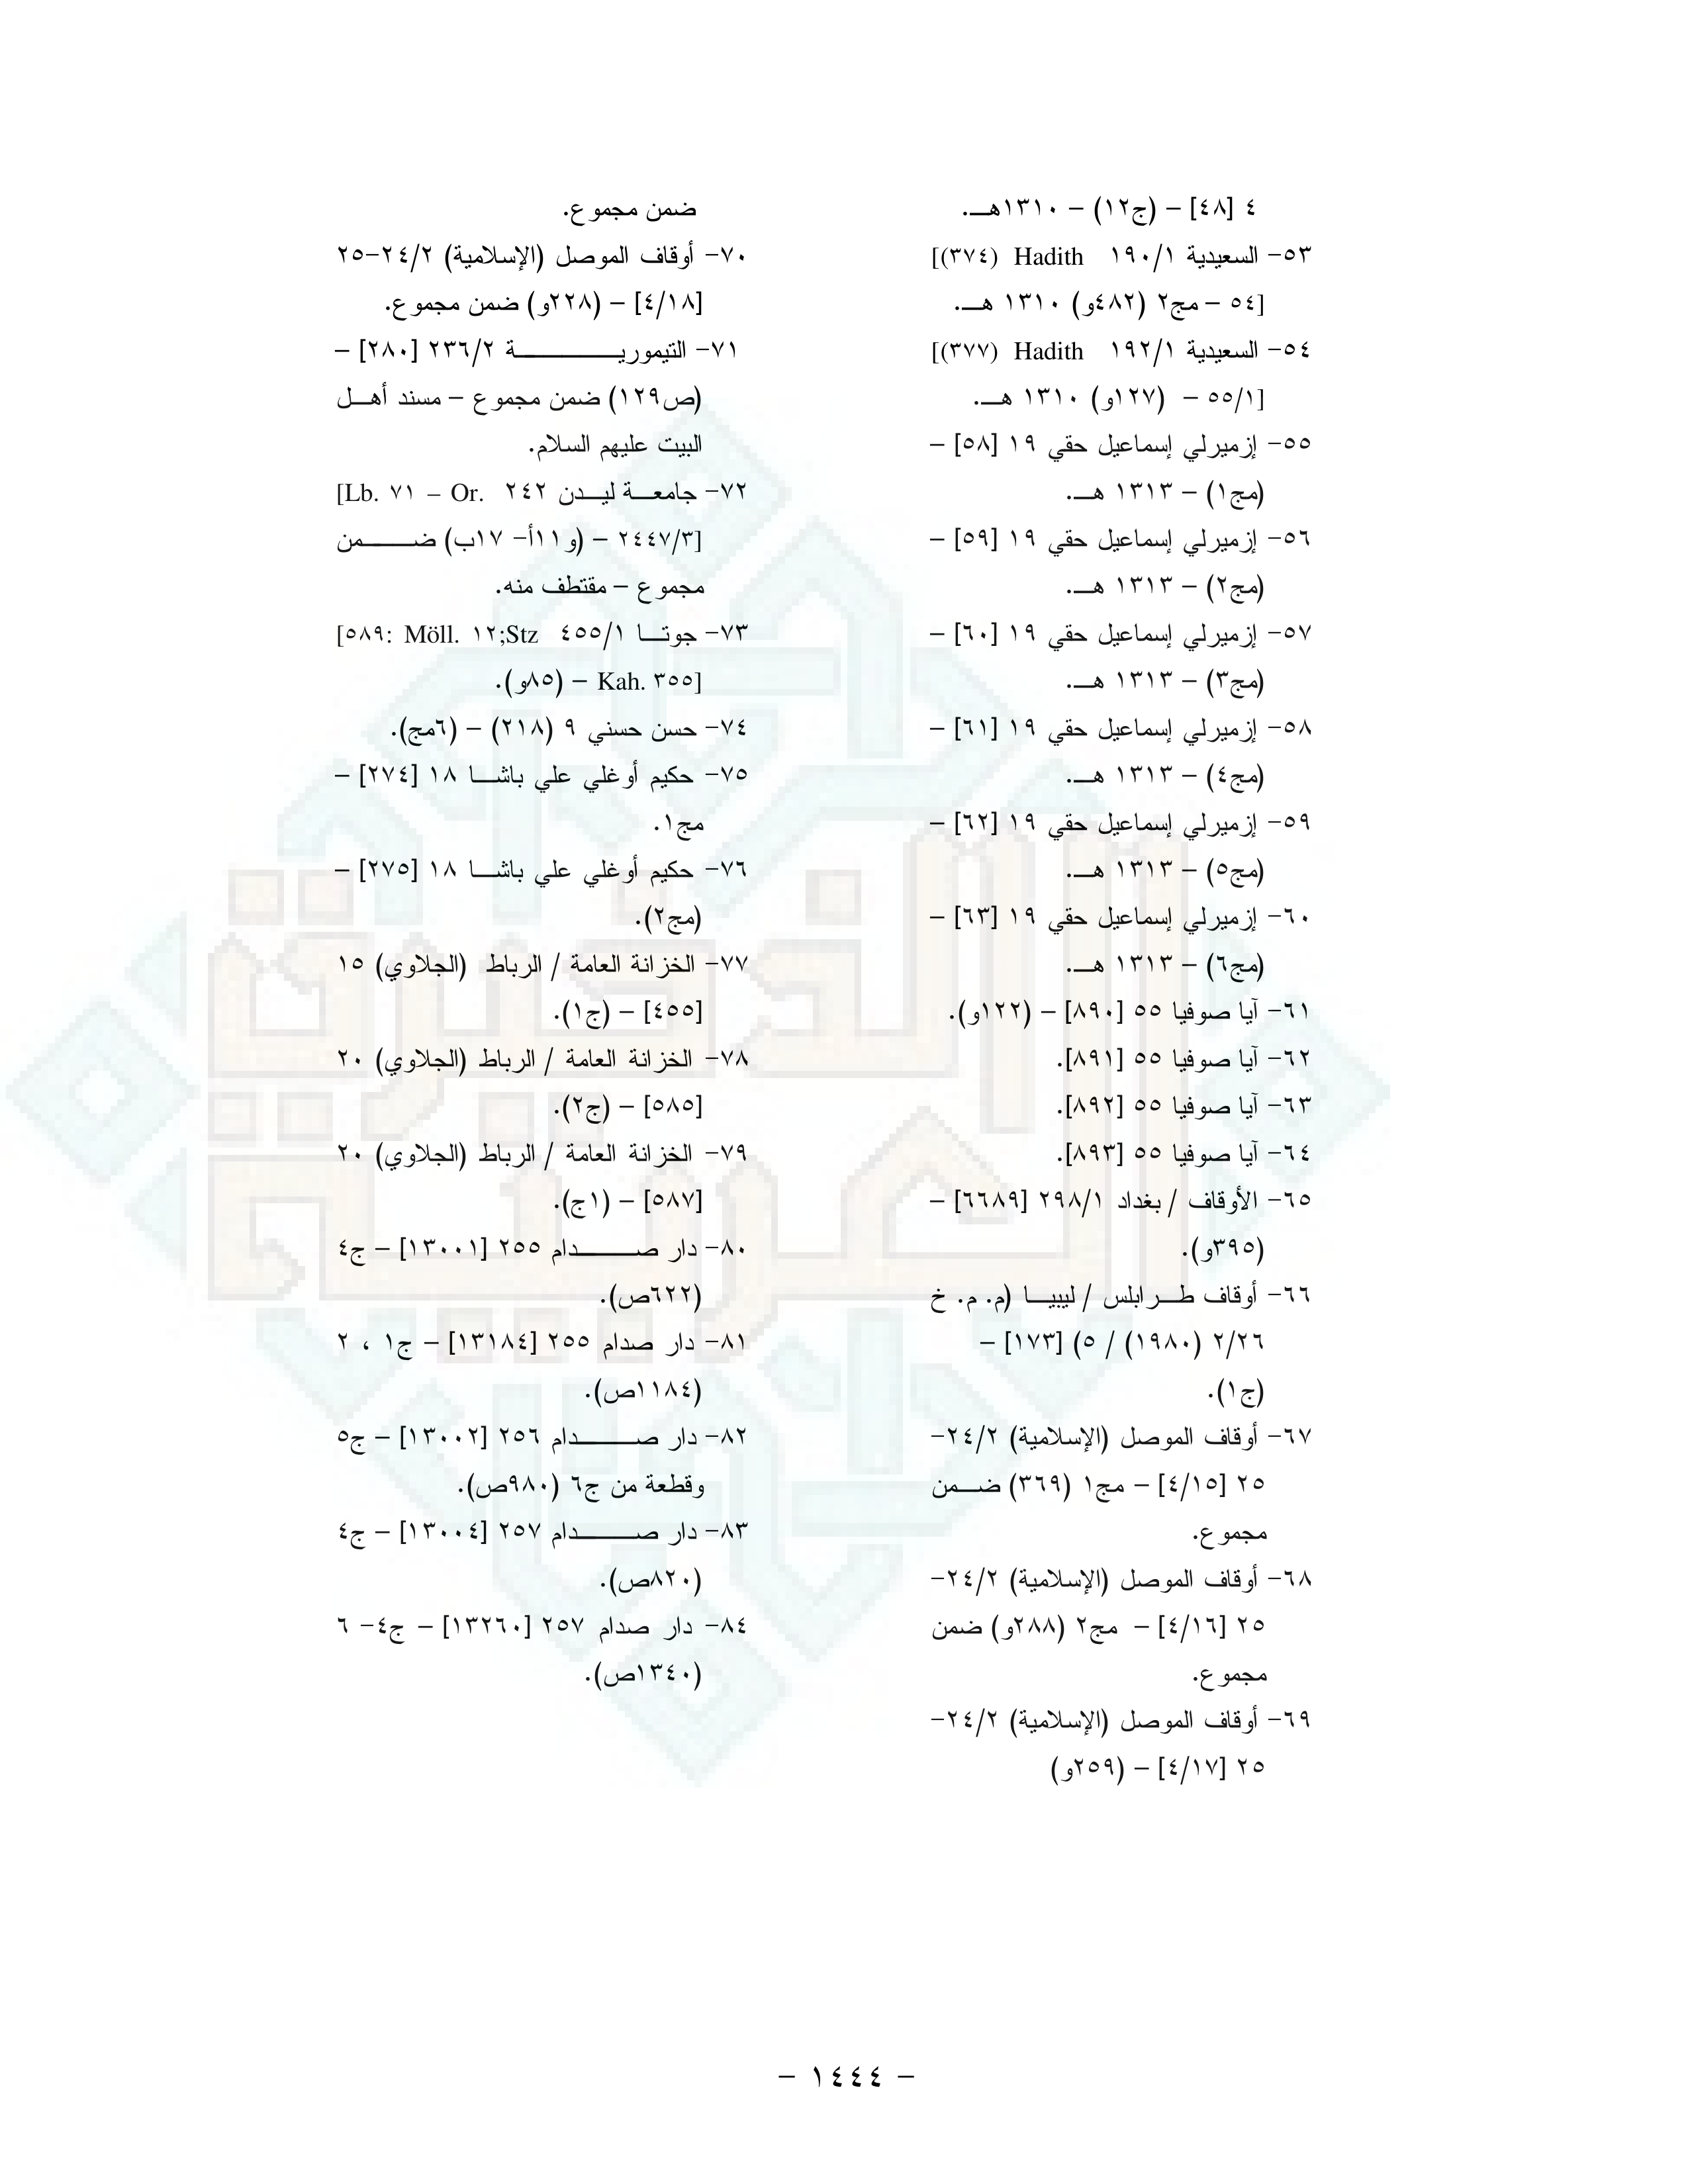 ٤ [٤٨] – (ج١٢) – ١٣١٠هـ.
٥٣- السعيدية ١٩٠/١ Hadith (٣٧٤)]
[٥٤ – مج٢ (٤٨٢و) ١٣١٠ هـ.
٥٤- السعيدية ١٩٢/١ Hadith (٣٧٧)]
[٥٥/١ – (١٢٧و) ١٣١٠ هـ.
٥٥- إزميرلي إسماعيل حقي ١٩ [٥٨] –
(مج١) – ١٣١٣ هـ.
٥٦- إزميرلي إسماعيل حقي ١٩ [٥٩] –
(مج٢) – ١٣١٣ هـ.
٥٧- إزميرلي إسماعيل حقي ١٩ [٦٠] –
(مج٣) – ١٣١٣ هـ.
٥٨- إزميرلي إسماعيل حقي ١٩ [٦١] –
(مج٤) – ١٣١٣ هـ.
٥٩- إزميرلي إسماعيل حقي ١٩ [٦٢] –
(مج٥) – ١٣١٣ هـ.
٦٠- إزميرلي إسماعيل حقي ١٩ [٦٣] –
(مج٦) – ١٣١٣ هـ.
٦١- آيا صوفيا ٥٥ [٨٩٠] – (١٢٢و).
٦٢- آيا صوفيا ٥٥ [٨٩١].
٦٣- آيا صوفيا ٥٥ [٨٩٢].
٦٤- آيا صوفيا ٥٥ [٨٩٣].
٦٥- الأوقاف / بغداد ٢٩٨/١ [٦٦٨٩] –
(٣٩٥و).
٦٦- أوقاف طرابلس / ليبيا (م. م. خ
٢/٢٦ (١٩٨٠) / ٥) [١٧٣] –
(ج١).
٦٧- أوقاف الموصل (الإسلامية) ٢٤/٢-
٢٥ [٤/١٥] – مج١ (٣٦٩) ضمن
مجموع.
٦٨- أوقاف الموصل (الإسلامية) ٢٤/٢-
٢٥ [٤/١٦] – مج٢ (٢٨٨و) ضمن
مجموع.
٦٩- أوقاف الموصل (الإسلامية) ٢٤/٢-
٢٥ [٤/١٧] – (٢٥٩و)
ضمن مجموع.
٧٠- أوقاف الموصل (الإسلامية) ٢٤/٢-٢٥
[٤/١٨] – (٢٢٨و) ضمن مجموع.
٧١- التيمورية ٢٣٦/٢ [٢٨٠] –
(ص١٢٩) ضمن مجموع – مسند أهل
البيت عليهم السلام.
٧٢- جامعة ليدن ٢٤٢ .Lb. ٧١ – Or]
[٢٤٤٧/٣ – (و١١أ- ١٧ب) ضمن
مجموع – مقتطف منه.
٧٣- جوتا ٤٥٥/١ ٥٨٩: Möll. ١٢;Stz]
[Kah. ٣٥٥ – (٨٥و).
٧٤- حسن حسني ٩ (٢١٨) – (٦مج).
٧٥- حكيم أوغلي علي باشا ١٨ [٢٧٤] –
مج١.
٧٦- حكيم أوغلي علي باشا ١٨ [٢٧٥] –
(مج٢).
٧٧- الخزانة العامة / الرباط (الجلاوي) ١٥
[٤٥٥] – (ج١).
٧٨- الخزانة العامة / الرباط (الجلاوي) ٢٠
[٥٨٥] – (ج٢).
٧٩- الخزانة العامة / الرباط (الجلاوي) ٢٠
[٥٨٧] – (١ج).
٨٠- دار صدام ٢٥٥ [١٣٠٠١] – ج٤
(٦٢٢ص).
٨١- دار صدام ٢٥٥ [١٣١٨٤] – ج١ ، ٢
(١١٨٤ص).
٨٢- دار صدام ٢٥٦ [١٣٠٠٢] – ج٥
وقطعة من ج٦ (٩٨٠ص).
٨٣- دار صدام ٢٥٧ [١٣٠٠٤] – ج٤
(٨٢٠ص).
٨٤- دار صدام ٢٥٧ [١٣٢٦٠] – ج٤- ٦
(١٣٤٠ص).
– ١٤٤٤ –